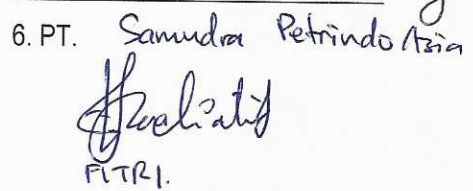 6. PT. Samudra Petrindo Asia
FITRI.